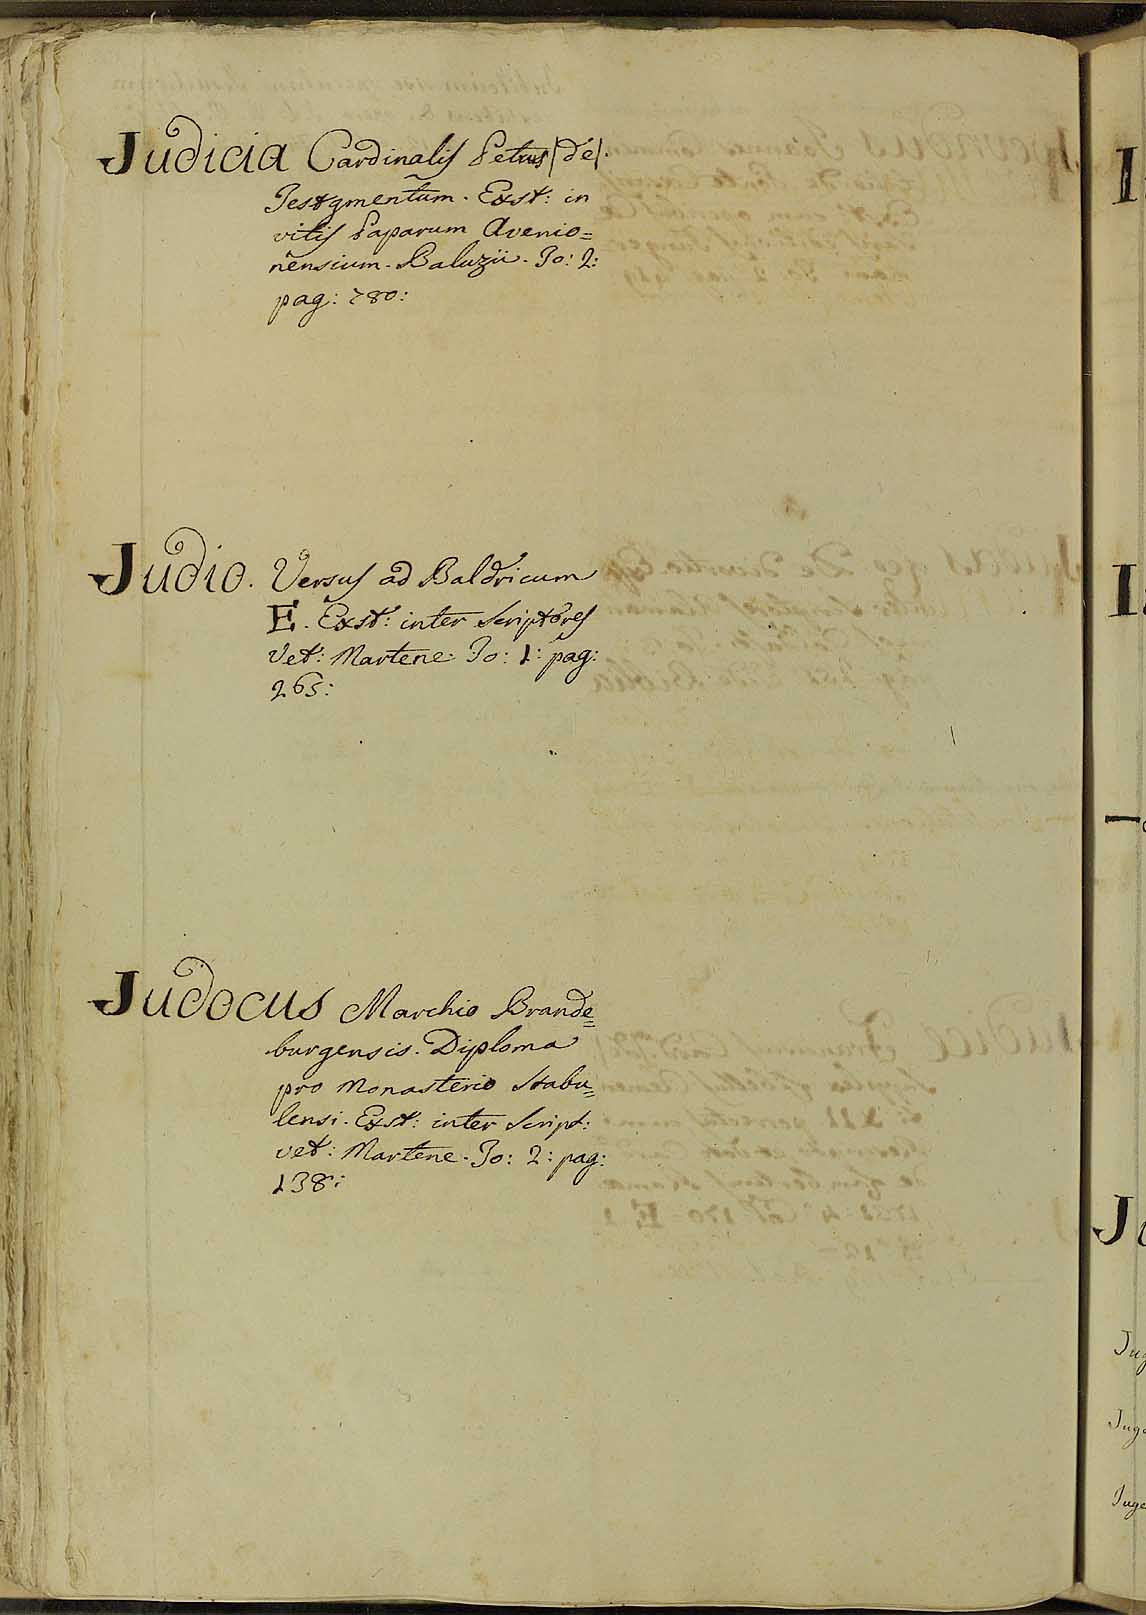 Judicia Cardinalis Petrus (de).
Testamentum. Exst: in
vitis Paparum Avenio=
nensium. Baluzii. To: 2:
pag: 780:
Judio. Versus ad Baldricum
E. Exst: inter Scriptores
Vet: Martene. To: 1: pag:
265:
Judocus Marchio Brande=
burgensis. Diploma
pro Monasterio Stabu=
lensi. Exst: inter Script:
vet: Martene. To: 2: pag:
138: